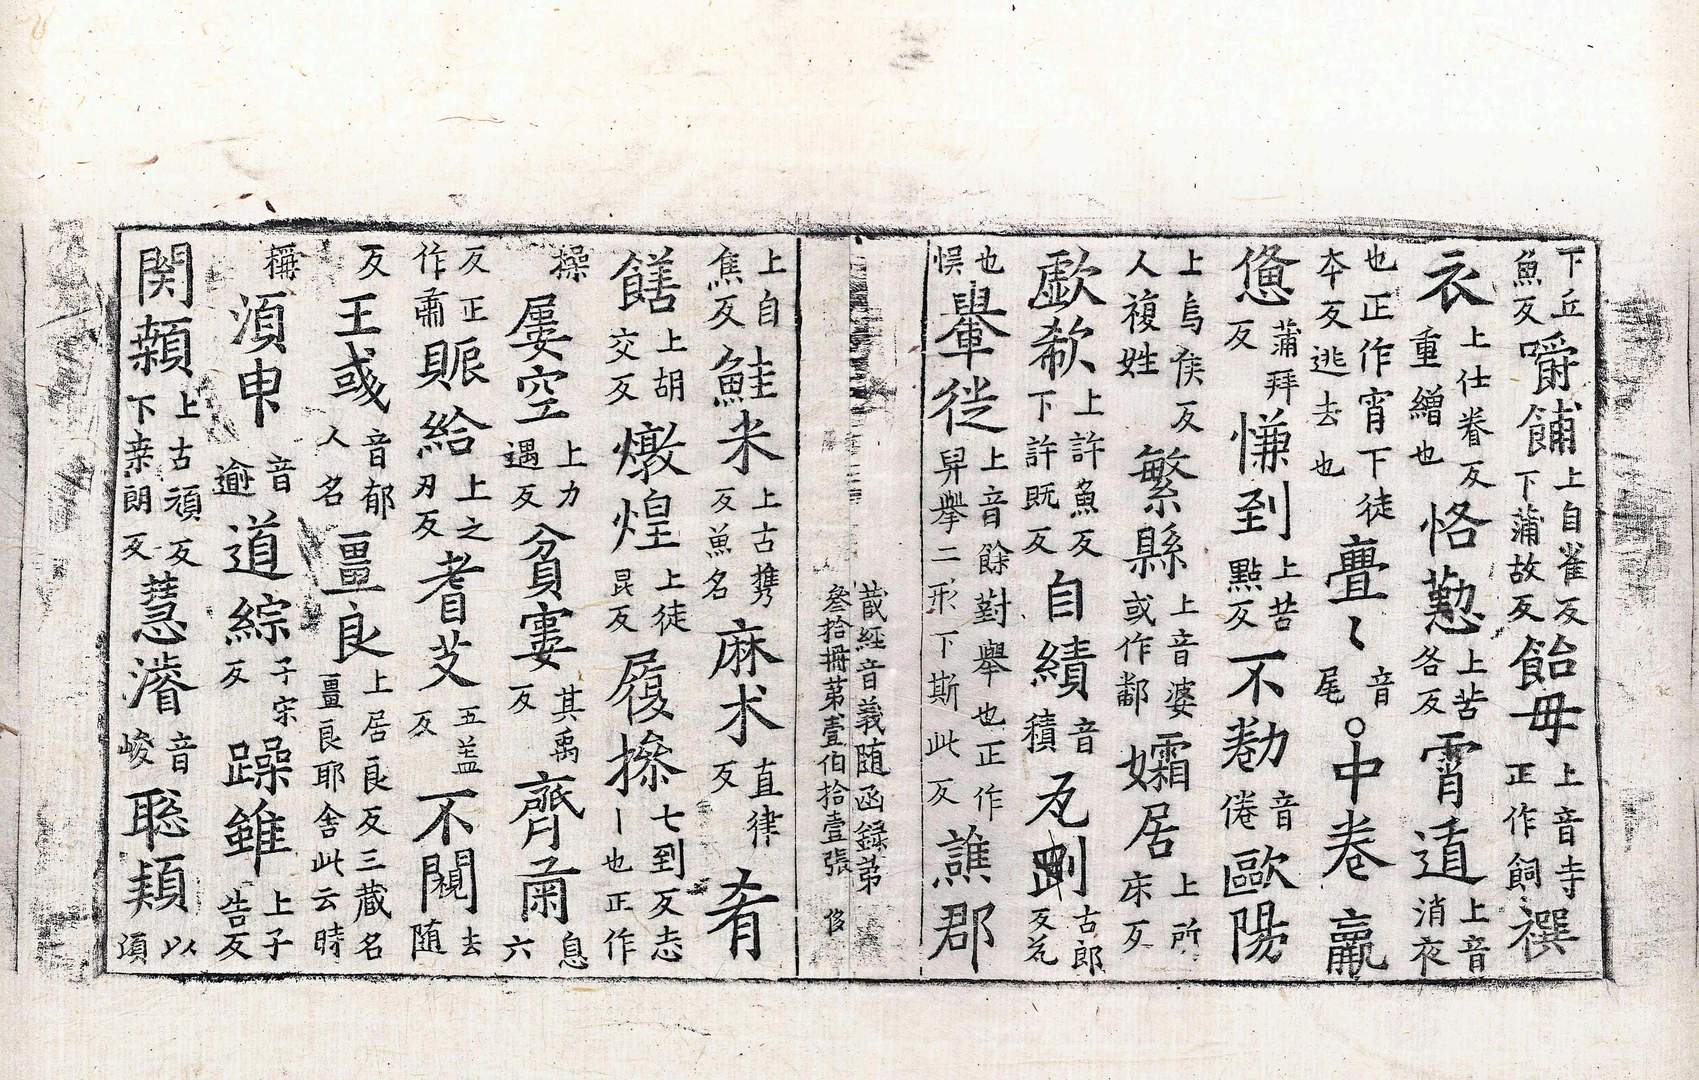 下丘魚反嚼餔上自雀反下蒲故反飴毋上音寺正作飼襈
衣上仕眷反重繒也恪懃上苦各反霄逭上音消夜
也正作宵下徒夲反逃去也亹〻音尾○中卷羸
憊蒲拜反慊到上苦點反不勌音倦歐陽
上烏侯反人複姓繁縣上音婆或作鄱孀居上所床反
歔欷上許魚反下許既反自績音積瓦古郎反瓦
也悞轝徙上音餘對舉也正作舁擧二形下斯此反譙郡
藏經音義随函録苐叄拾冊苐壹伯拾壹張
上自焦反鮭米上古攜反魚名麻朮直律反肴
饍上胡交反燉煌上徒昆反履操七到反志丨也正作
操屢空上力遇反貧寠其禹反齊肅息六
反正作肅賑給上之刃反耆艾五盖反不閱去随
反王彧音郁人名畺良上居良反三藏名畺良耶舍此云時
稱湏申音逾道綜子宋反躁雖上子告反
関顙上古頑反下桒朗反慧濬音峻聡類以湏